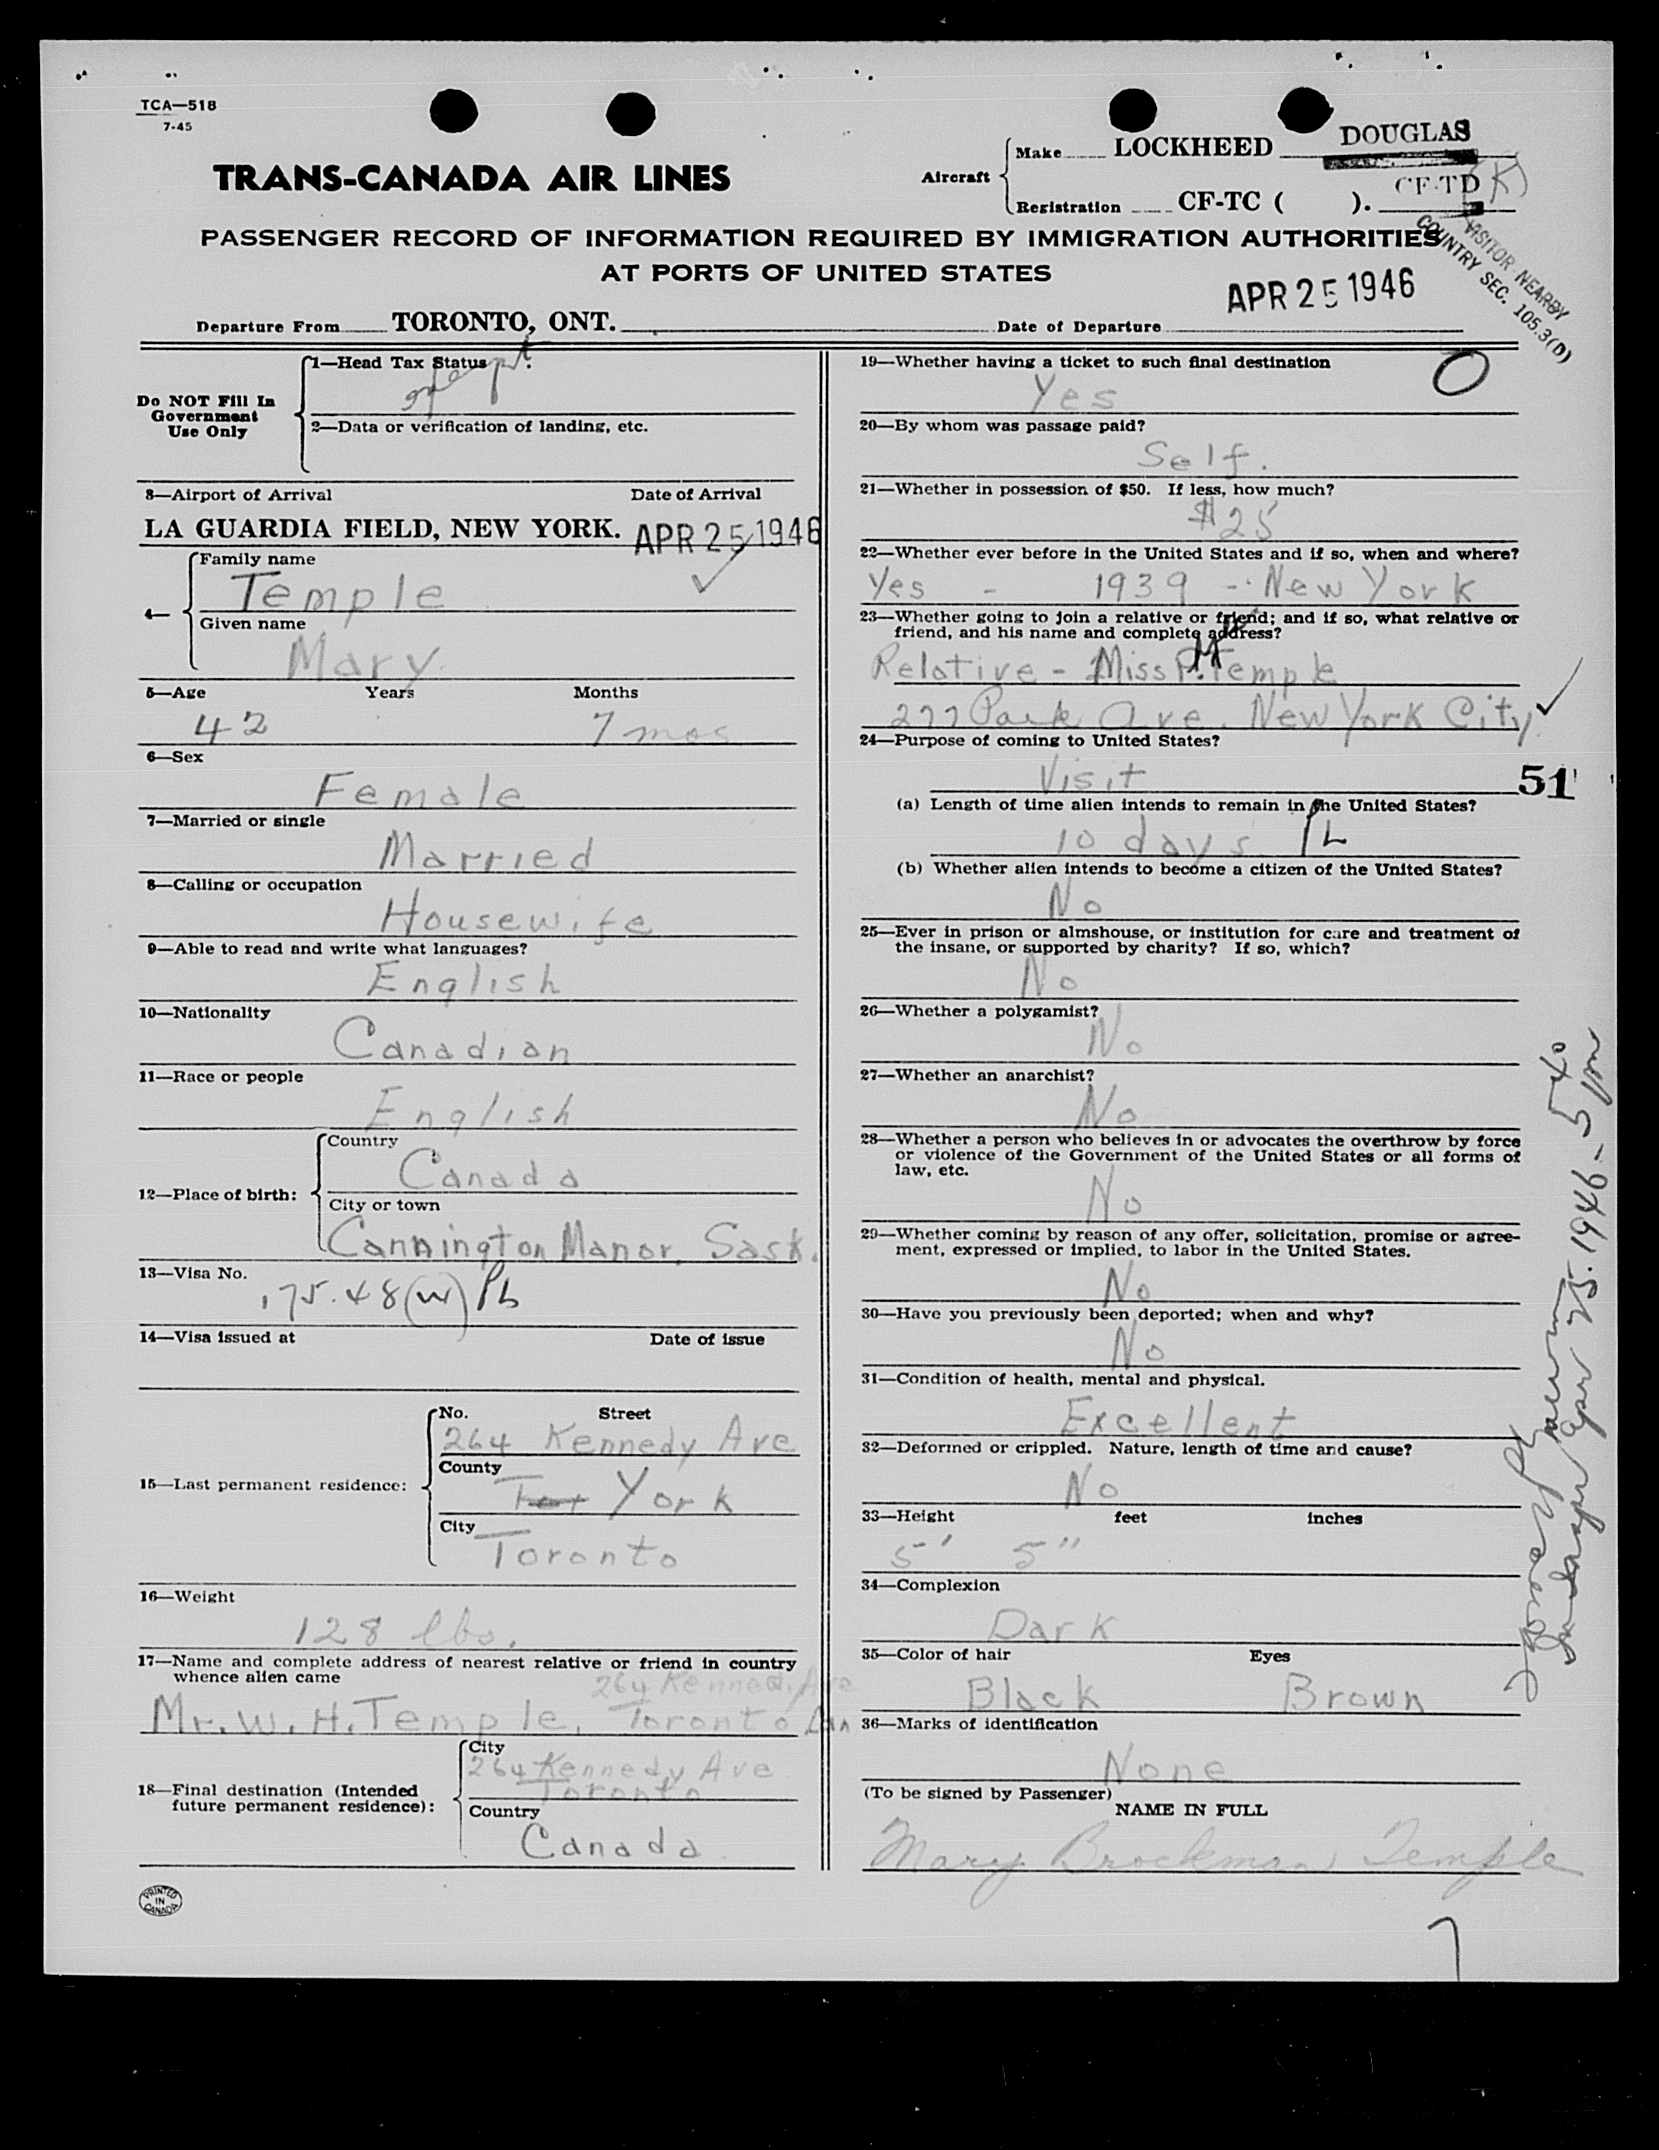 TCA—518
7-45
TRANS-CANADA AIR LINES
Aircraft
Make LOCKHEED DOUGLAS
Registration CF-TC ( ). CF-TD (K)
PASSENGER RECORD OF INFORMATION REQUIRED BY IMMIGRATION AUTHORITIES
AT PORTS OF UNITED STATES
VISITOR NEARBY
COUNTRY SEC. 105.3(D)
APR 25 1946
Departure From TORONTO, ONT. Date of Departure
Do NOT Fill In
Government
Use Only
1—Head Tax Status
exempt.
2—Data or verification of landing, etc.
3—Airport of Arrival Date of Arrival
LA GUARDIA FIELD, NEW YORK. APR 25 1946
4—
Family name
Temple
Given name
Mary.
5—Age Years Months
42 7 mos
6—Sex
Female
7—Married or single
Married
8—Calling or occupation
Housewife
9—Able to read and write what languages?
English
10—Nationality
Canadian
11—Race or people
English
12—Place of birth:
Country
Canada
City or town
Cannington Manor, Sask.
13—Visa No.
175.48(w)
14—Visa issued at Date of issue
15—Last permanent residence:
No. Street
264 Kennedy Ave
County
York
City
Toronto
16—Weight
128 lbs.
17—Name and complete address of nearest relative or friend in country
whence alien came
264 Kennedy Ave
Mr. W. H. Temple, Toronto Can
18—Final destination (Intended
future permanent residence):
City
264 Kennedy Ave
Toronto
Country
Canada
PRINTED
IN
CANADA
19—Whether having a ticket to such final destination
Yes
20—By whom was passage paid?
Self.
21—Whether in possession of $50. If less, how much?
$25
22—Whether ever before in the United States and if so, when and where?
Yes - 1939 - New York
23—Whether going to join a relative or friend; and if so, what relative or
friend, and his name and complete address?
Relative - Miss P. Temple
277 Park Ave. New York City
24—Purpose of coming to United States?
Visit
51
(a) Length of time alien intends to remain in the United States?
10 days
(b) Whether alien intends to become a citizen of the United States?
No
25—Ever in prison or almshouse, or institution for care and treatment of
the insane, or supported by charity? If so, which?
No
26—Whether a polygamist?
No
27—Whether an anarchist?
No
28—Whether a person who believes in or advocates the overthrow by force
or violence of the Government of the United States or all forms of
law, etc.
No
29—Whether coming by reason of any offer, solicitation, promise or agree-
ment, expressed or implied, to labor in the United States.
No
30—Have you previously been deported; when and why?
No
31—Condition of health, mental and physical.
Excellent
32—Deformed or crippled. Nature, length of time and cause?
No
33—Height feet inches
5' 5"
34—Complexion
Dark
35—Color of hair Eyes
Black Brown
36—Marks of identification
None
(To be signed by Passenger)
NAME IN FULL
Mary Brockman Temple
25. 1946 - 5 40 pm
7